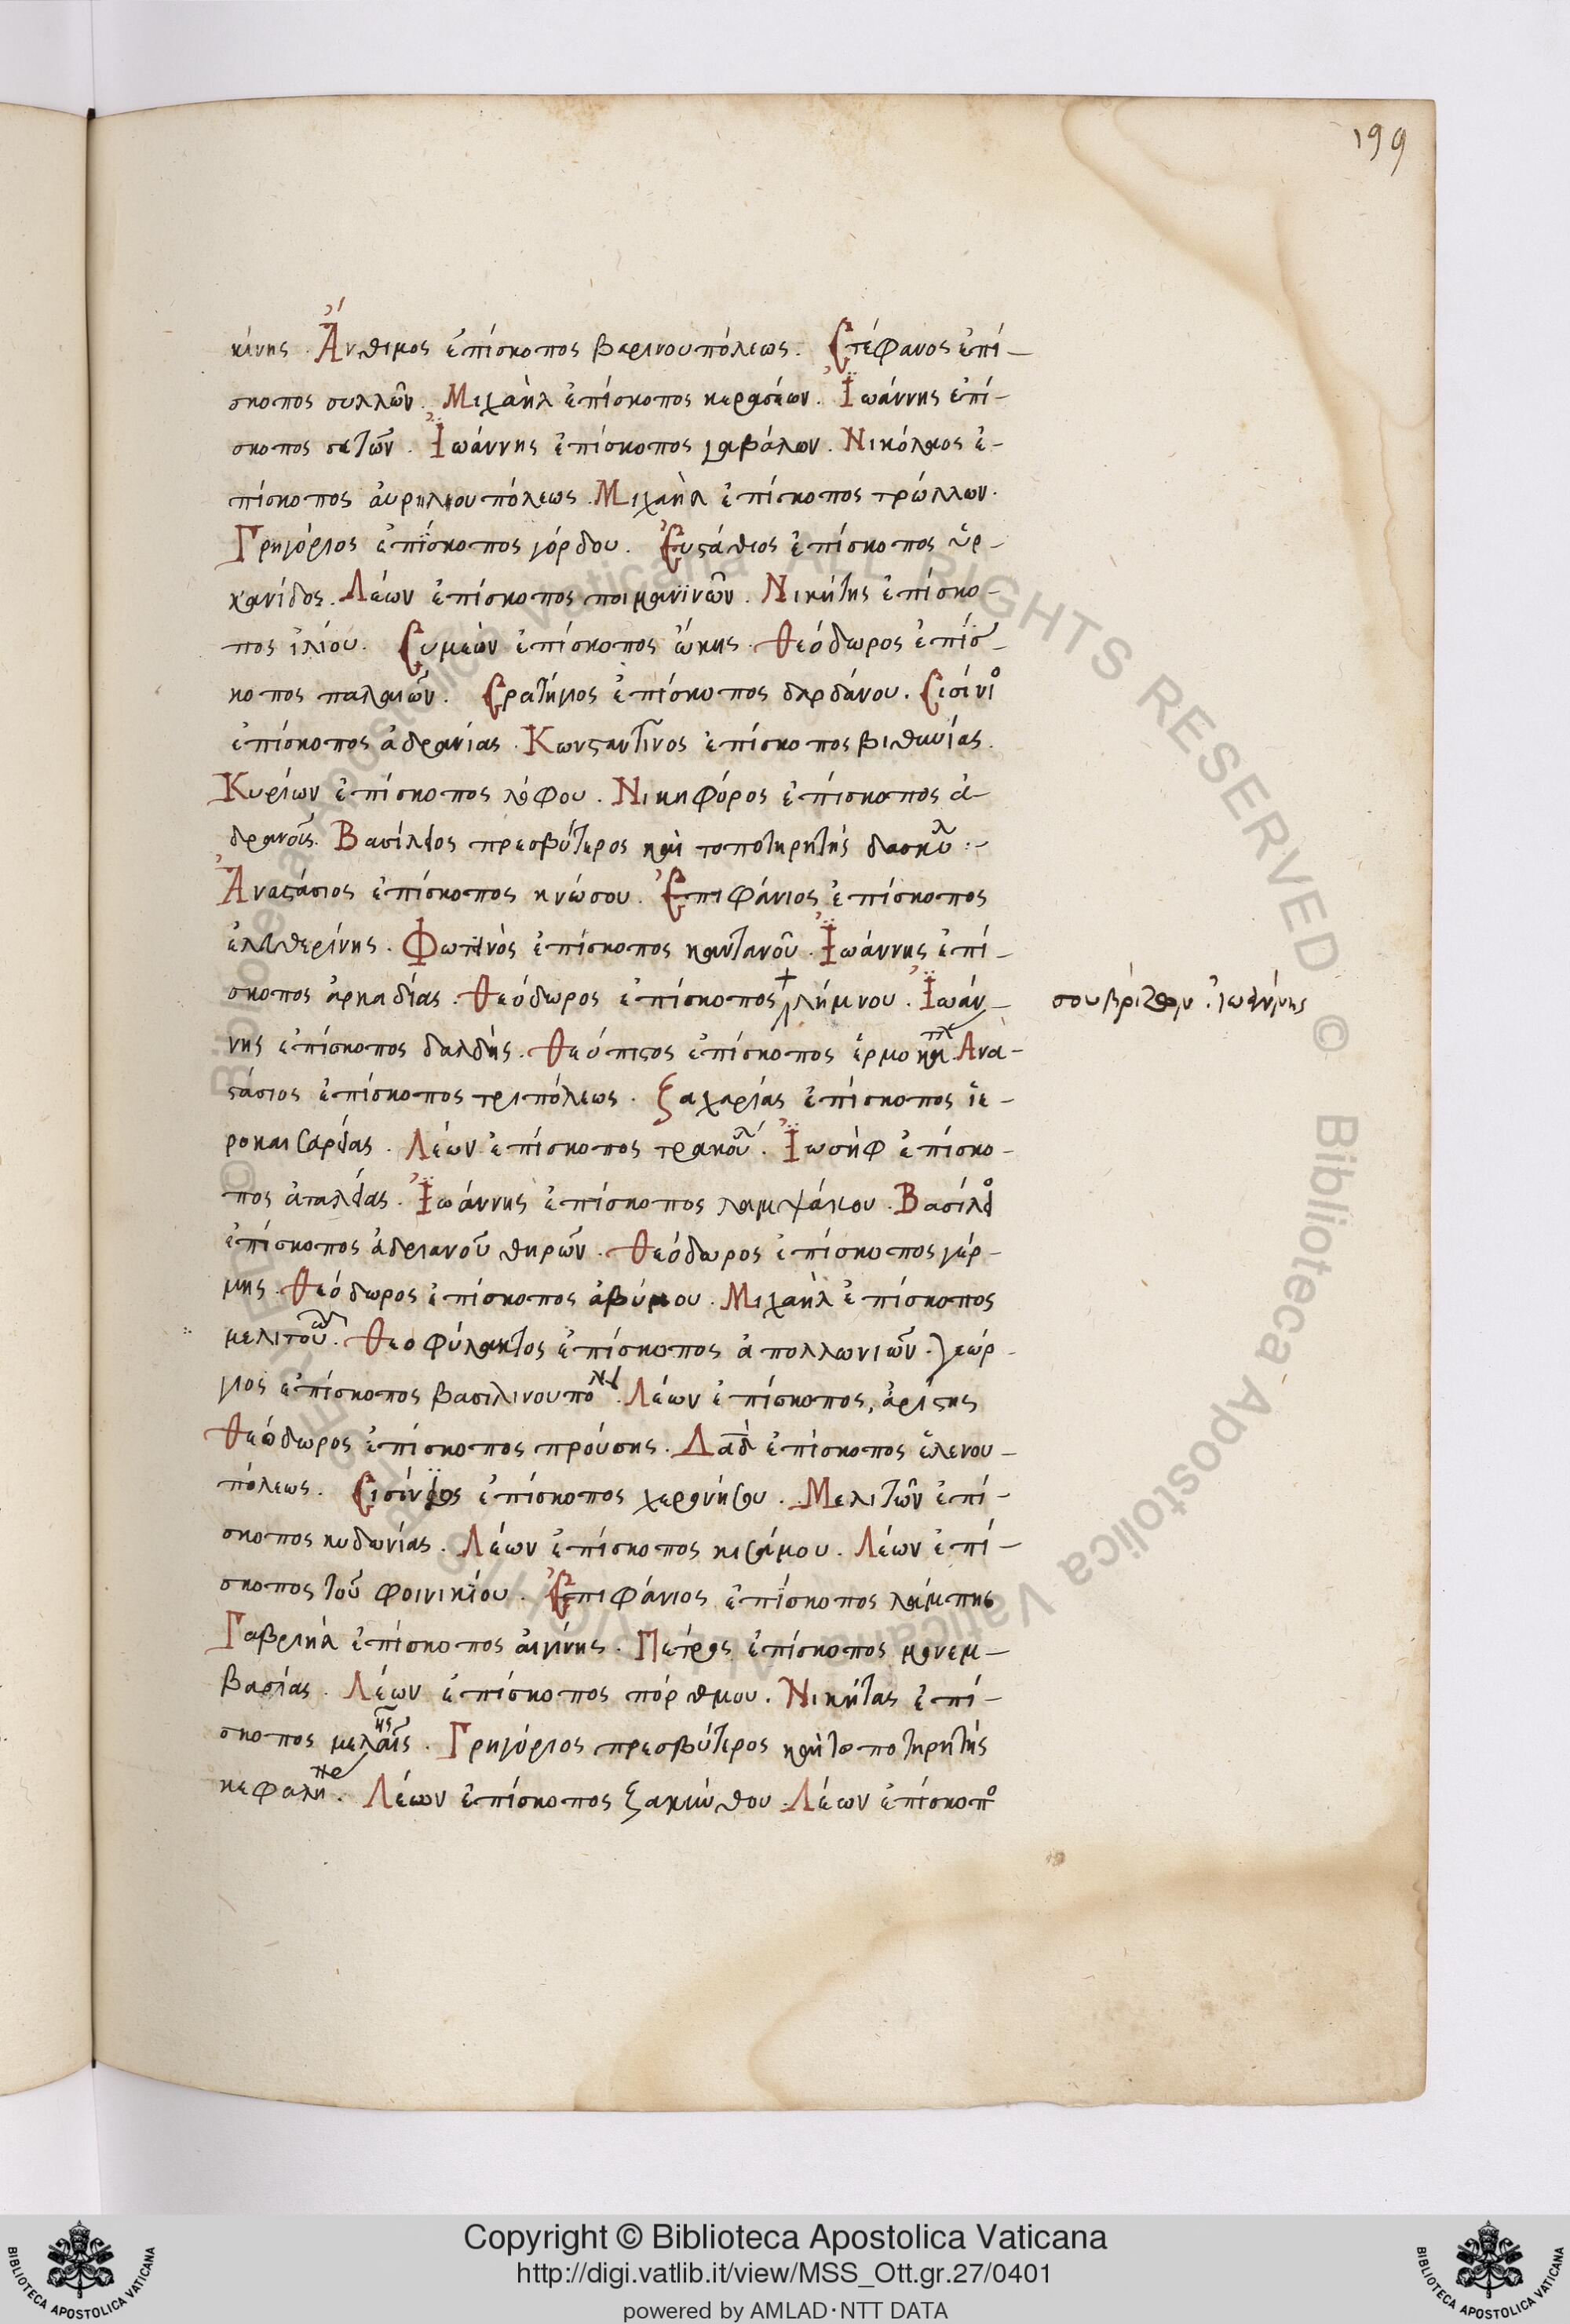 199
κίνης. Ἄνθιμος ἐπίσκοπος βαρινουπόλεως. Στέφανος ἐπί-
σκοπος συλλῶν. Μιχαὴλ ἐπίσκοπος κερασέων. Ἰωάννης ἐπί-
σκοπος σετῶν. Ἰωάννης ἐπίσκοπος γαβάλων. Νικόλαος ἐ-
πίσκοπος ἀυρηλιουπόλεως. Μιχαὴλ ἐπίσκοπος τρώλλων.
Γρηγόριος ἐπίσκοπος γόρδου. Ἐυστάθιος ἐπίσκοπος ὑρ-
κανίδος. Λέων ἐπίσκοπος ποιμανινῶν. Νικήτης ἐπίσκο-
πος ἰλίου. Συμεὼν ἐπίσκοπος ὤκης. Θεόδωρος ἐπίσ-
κοπος παλαιῶν. Στρατήγιος ἐπίσκοπος δαρδάνου. Σισίνιο
ἐπίσκοπος ἀδρανίας. Κωνσταντῖνος ἐπίσκοπος βιθυνίας.
Κυρίων ἐπίσκοπος λόφου. Νικηφόρος ἐπίσκοπος ἀ-
δρανοίς. Βασίλειος πρεσβύτερος καὶ τοποτηρητὴς δασκυλ :-
Ἀναστάσιος ἐπίσκοπος κνώσου. Ἐπιφάνιος ἐπίσκοπος
ἐλευθερίνης. Φωτινὸς ἐπίσκοπος καντανοῦ. Ἰωάννης ἐπί-
σκοπος ἀρκαδίας. Θεόδωρος ἐπίσκοπος λήμνου. Ἰωάν-
σουβρίτων. Ἰωάννης
νης ἐπίσκοπος δαλδῆς. Θεόπιστος ἐπίσκοπος ἑρμοκαπ. Ἀνα-
στάσιος ἐπίσκοπος τριπόλεως. ζαχαρίας ἐπίσκοπος ἱε-
ροκαισαρείας. Λέων ἐπίσκοπος τρακούλ. Ἰωσὴφ ἐπίσκο-
πος ἀταλείας. Ἰωάννης ἐπίσκοπος λαμψάκου. Βασίλειο
ἐπίσκοπος ἀδριανοῦ θηρῶν. Θεόδωρος ἐπίσκοπος γέρ-
μης. Θεόδωρος ἐπίσκοπος ἀβύμου. Μιχαὴλ ἐπίσκοπος
μελιτου. Θεοφύλακτος ἐπίσκοπος ἀπολλωνιῶν. γεώρ-
γιος ἐπίσκοπος βασιλινουπολει. Λέων ἐπίσκοπος, ἀρίστης
Θεόδωρος ἐπίσκοπος προύσης. Δαδ ἐπίσκοπος ἑλενου-
πόλεως. Σισίνιος ἐπίσκοπος χερονήσου. Μελιτῶν ἐπί-
σκοπος κυδωνίας. Λέων ἐπίσκοπος κισάμου. Λέων ἐπί-
σκοπος τοῦ φοινικίου. Ἐπιφάνιος ἐπίσκοπος λάμπης
Γαβριὴλ ἐπίσκοπος ἀιγίνης. Πέτρος ἐπίσκοπος μονεμ-
βασίας. Λέων ἐπίσκοπος πόρθμου. Νικήτας ἐπί-
σκοπος Γρηγόριος πρεσβύτερος καὶ τοποτηρητὴς
κεφαλη. Λέων ἐπίσκοπος ζακύνθου. Λέων ἐπίσκοπο
Copyright © Biblioteca Apostolica Vaticana
http://digi.vatlib.it/view/MSS_Ott.gr.27/0401
powered by AMLAD·NTT DATA